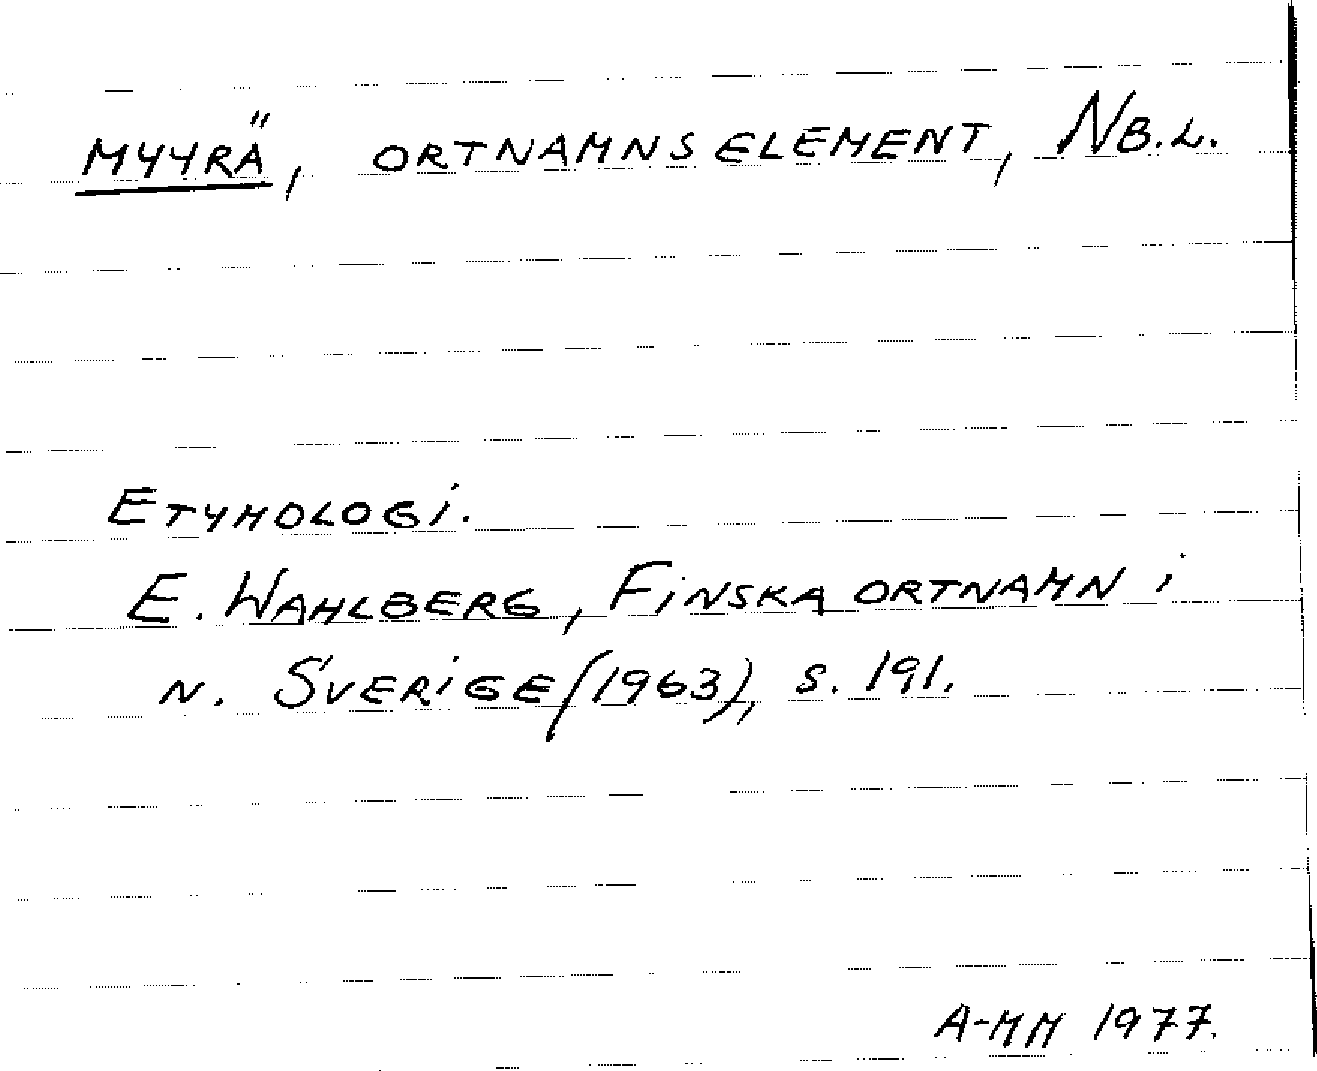 MYYRÄ, ORTNAMNSELEMENT, NB.L.
ETYMOLOGI.
E. WAHLBERG, FINSKA ORTNAMN I
N. SVERIGE (1963), S. 191.
A-MM 1977.